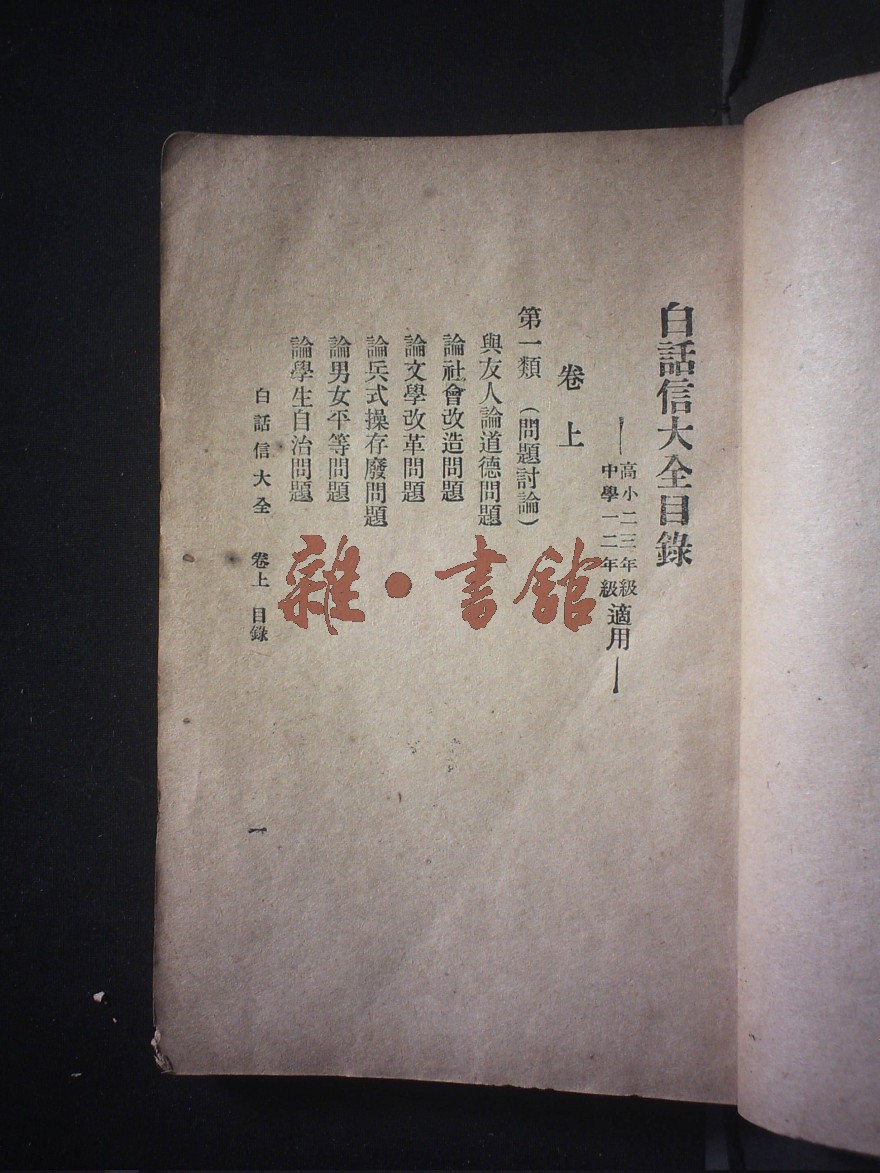 白話信大全目錄
高小二三年級
中學一二年級
適用
卷上
第一類 (問題討論)
與友人論道德問題
論社會改造問題
論文學改革問題
論兵式操存廢問題
論男女平等問題
論學生自治問題
白話信大全 卷上 目錄
一
雜·書館